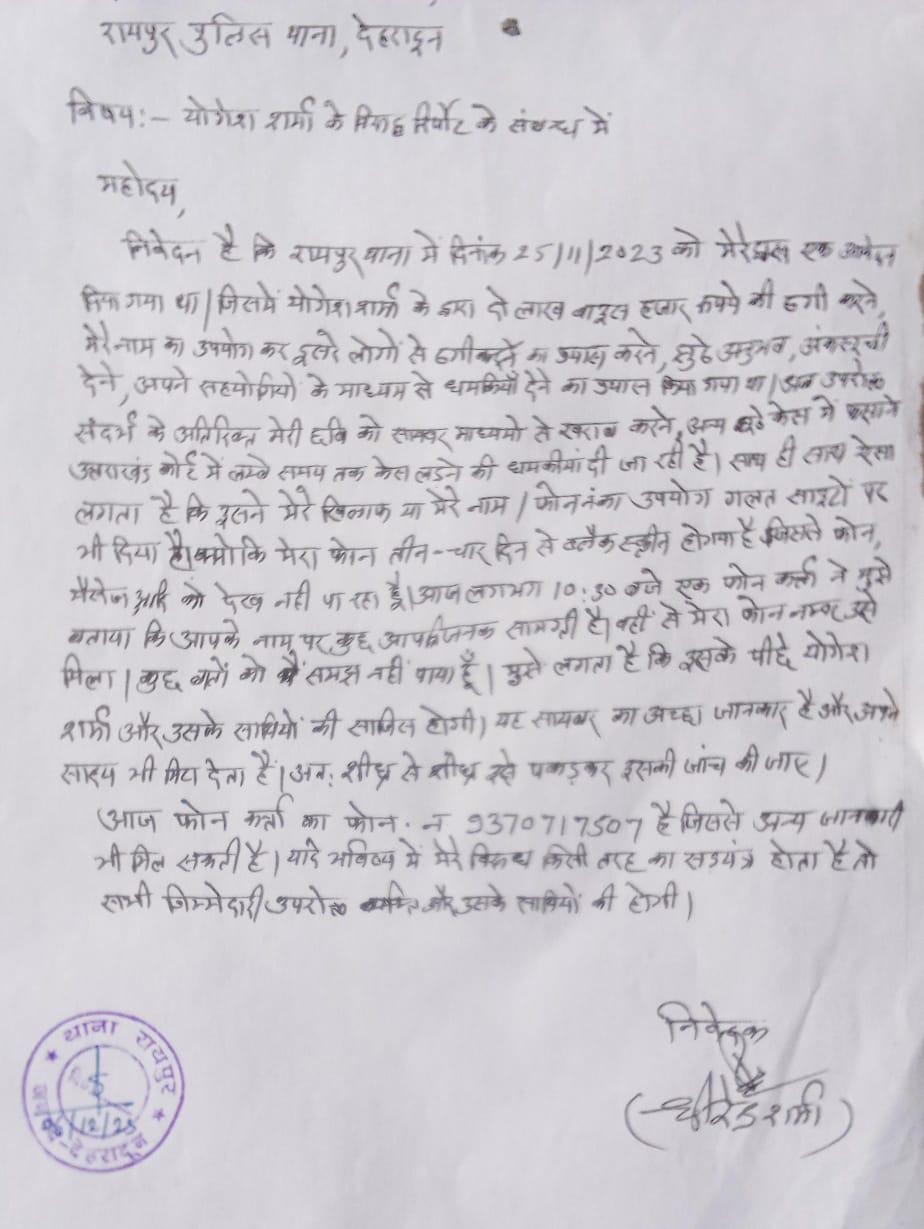 रायपुर पुलिस थाना, देहरादून
विषय:- योगेश शर्मा के विरूद्ध रिर्पोट के संबन्ध में
महोदय,
निवेदन है कि रायपुर थाना में दिनांक 25/11/2023 को मेरे द्वारा एक आवेदन
दिया गया था। जिसमें योगेश शर्मा के द्वारा दो लाख बाइस हजार रूपये की ठगी करने,
मेरे नाम का उपयोग कर दूसरे लोगों से ठगी करने का प्रयास करने, झुठे अनुभव, अंकसूची
देने, अपने सहयोगियों के माध्यम से धमकियाँ देने का प्रयास किया गया था। अब उपरोक्त
संदर्भ के अतिरिक्त मेरी छवि को सायबर माध्यमो से खराब करने, अन्य झुठे केस में फसाने
उत्तराखंड कोर्ट में लम्बे समय तक केस लडने की धमकीयां दी जा रही है। साथ ही साथ ऐसा
लगता है कि इसने मेरे खिलाफ या मेरे नाम / फोन नं का उपयोग गलत साइटों पर
भी दिया है। क्योकि मेरा फोन तीन-चार दिन से ब्लैक स्क्रीन होगया है जिससे फोन,
मैसेज आदि को देख नही पा रहा हूँ। आज लगभग 10:30 बजे एक फोन कर्त्ता ने मुझे
बताया कि आपके नाम पर कुछ आपत्तिजनक सामग्री है। वहीं से मेरा फोन नम्बर उसे
मिला। कुछ बातों को मैं समझ नहीं पाया हूँ। मुझे लगता है कि इसके पीछे योगेश
शर्मा और उसके साथियों की साजिस होगी। यह सायबर का अच्छा जानकार है और अपने
साक्ष्य भी मिटा देता है। अत: शीघ्र से शीघ्र इसे पकड़कर इसकी जांच की जाए।
आज फोन कर्त्ता का फोन. न 9370717507 है जिससे अन्य जानकारी
भी मिल सकती है। यदि भविष्य में मेरे विरूध किसी तरह का सडयंत्र होता है तो
सभी जिम्मेदारी उपरोक्त व्यक्ति और उसके साथियों की होगी।
निवेदक
(धीरेन्द्र शर्मा)
थाना रायपुर
12/23
जनपद-देहरादून